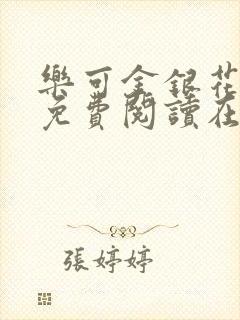 樂可金銀花
免費閱讀在
張婷婷